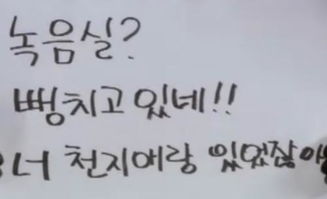 녹음실?
뻥치고 있네!!
너 천지애랑 있었잖아